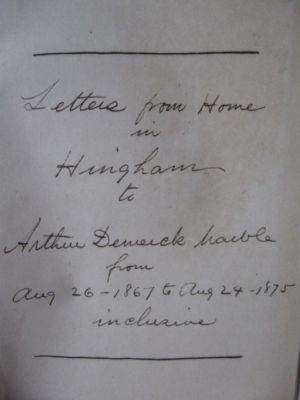 Letters from Home
in
Hingham
to
Arthur Demerick Marble
from
Aug 26 - 1867 to Aug 24 - 1875
inclusive